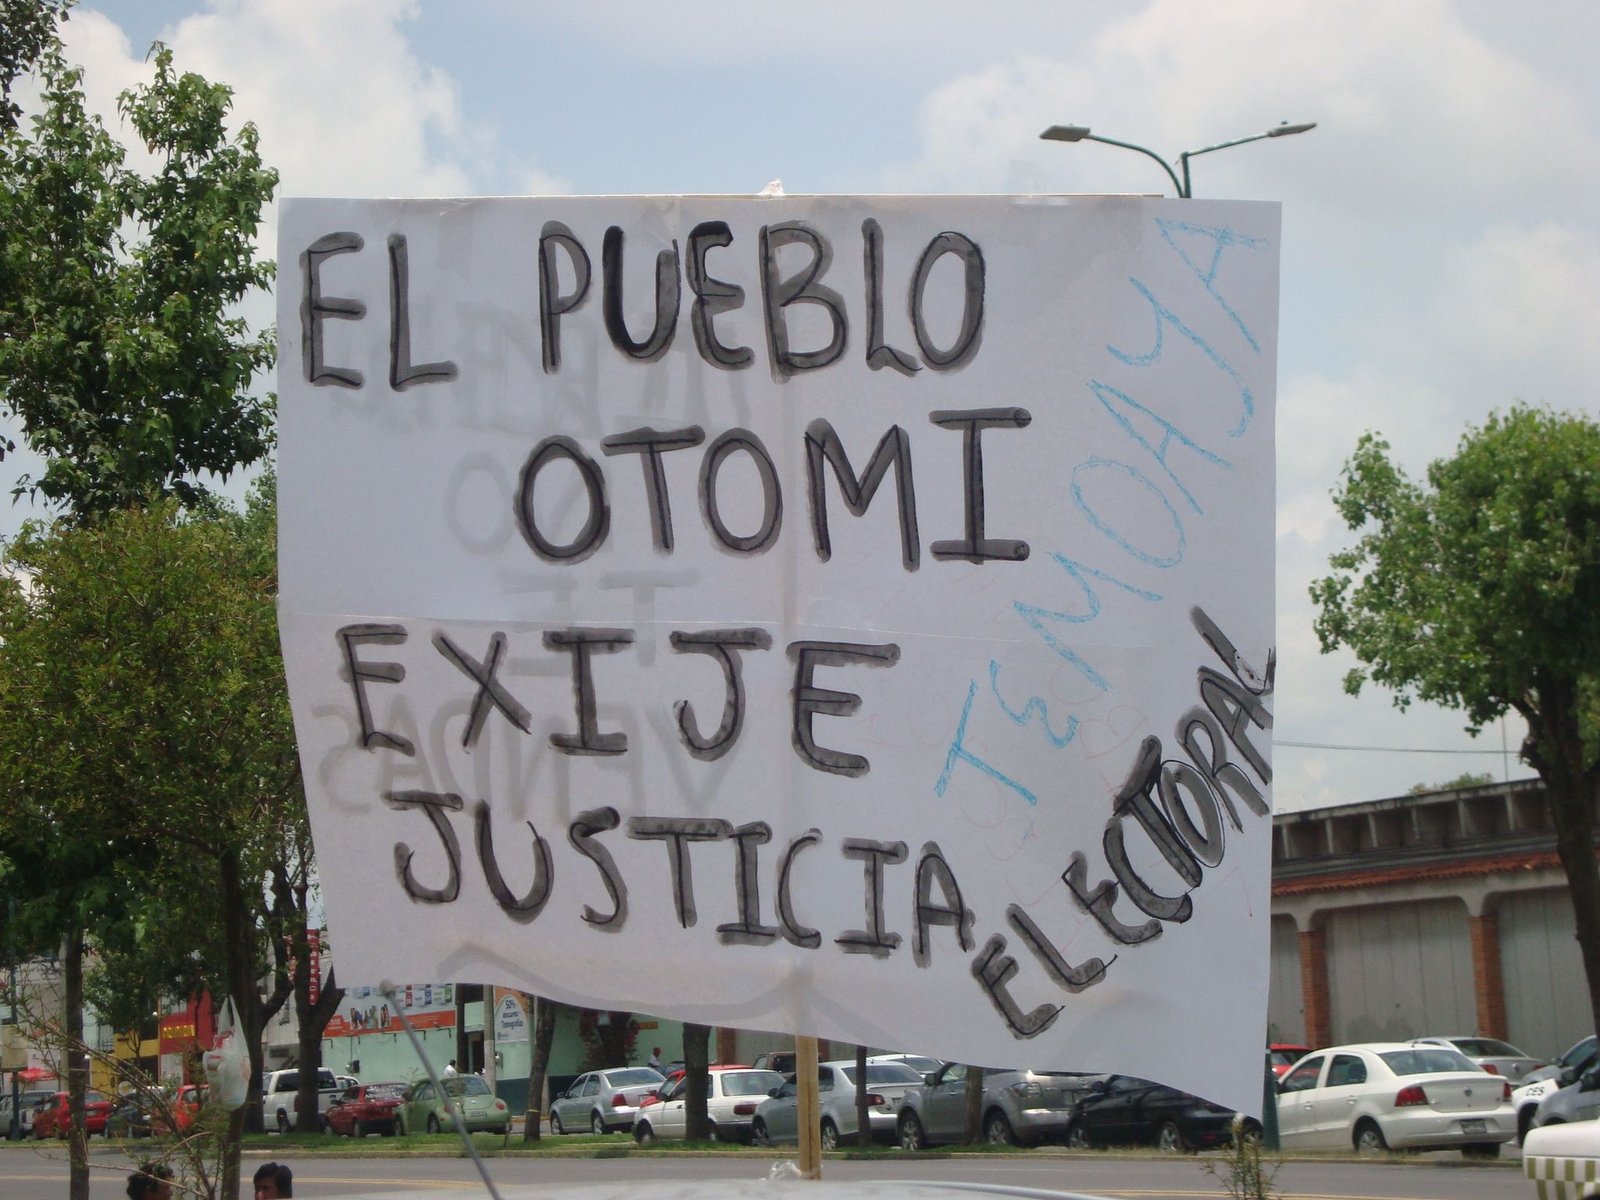 EL PUEBLO
OTOMI
EXIJE
JUSTICIA ELECTORAL
TEMOAYA
50%